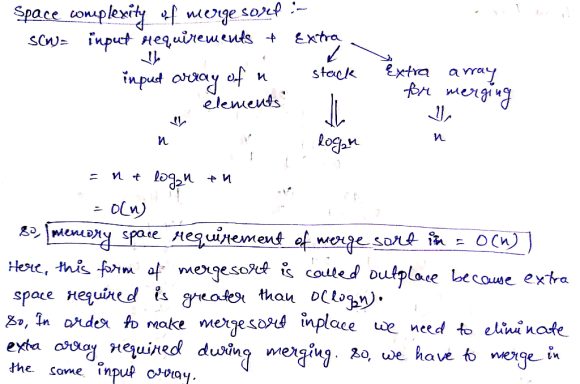 Space complexity of mergesort :-
S(n)= input requirements + Extra
⇓ ↙ ↘
input array of n elements stack Extra array for merging
⇓ ⇓ ⇓
n log₂n n
= n + log₂n + n
= O(n)
So, memory space requirement of merge sort is = O(n)
Here, this form of mergesort is called outplace because extra
space required is greater than O(log₂n).
So, In order to make mergesort inplace we need to eliminate
exta array required during merging. So, we have to merge in
the same input array.